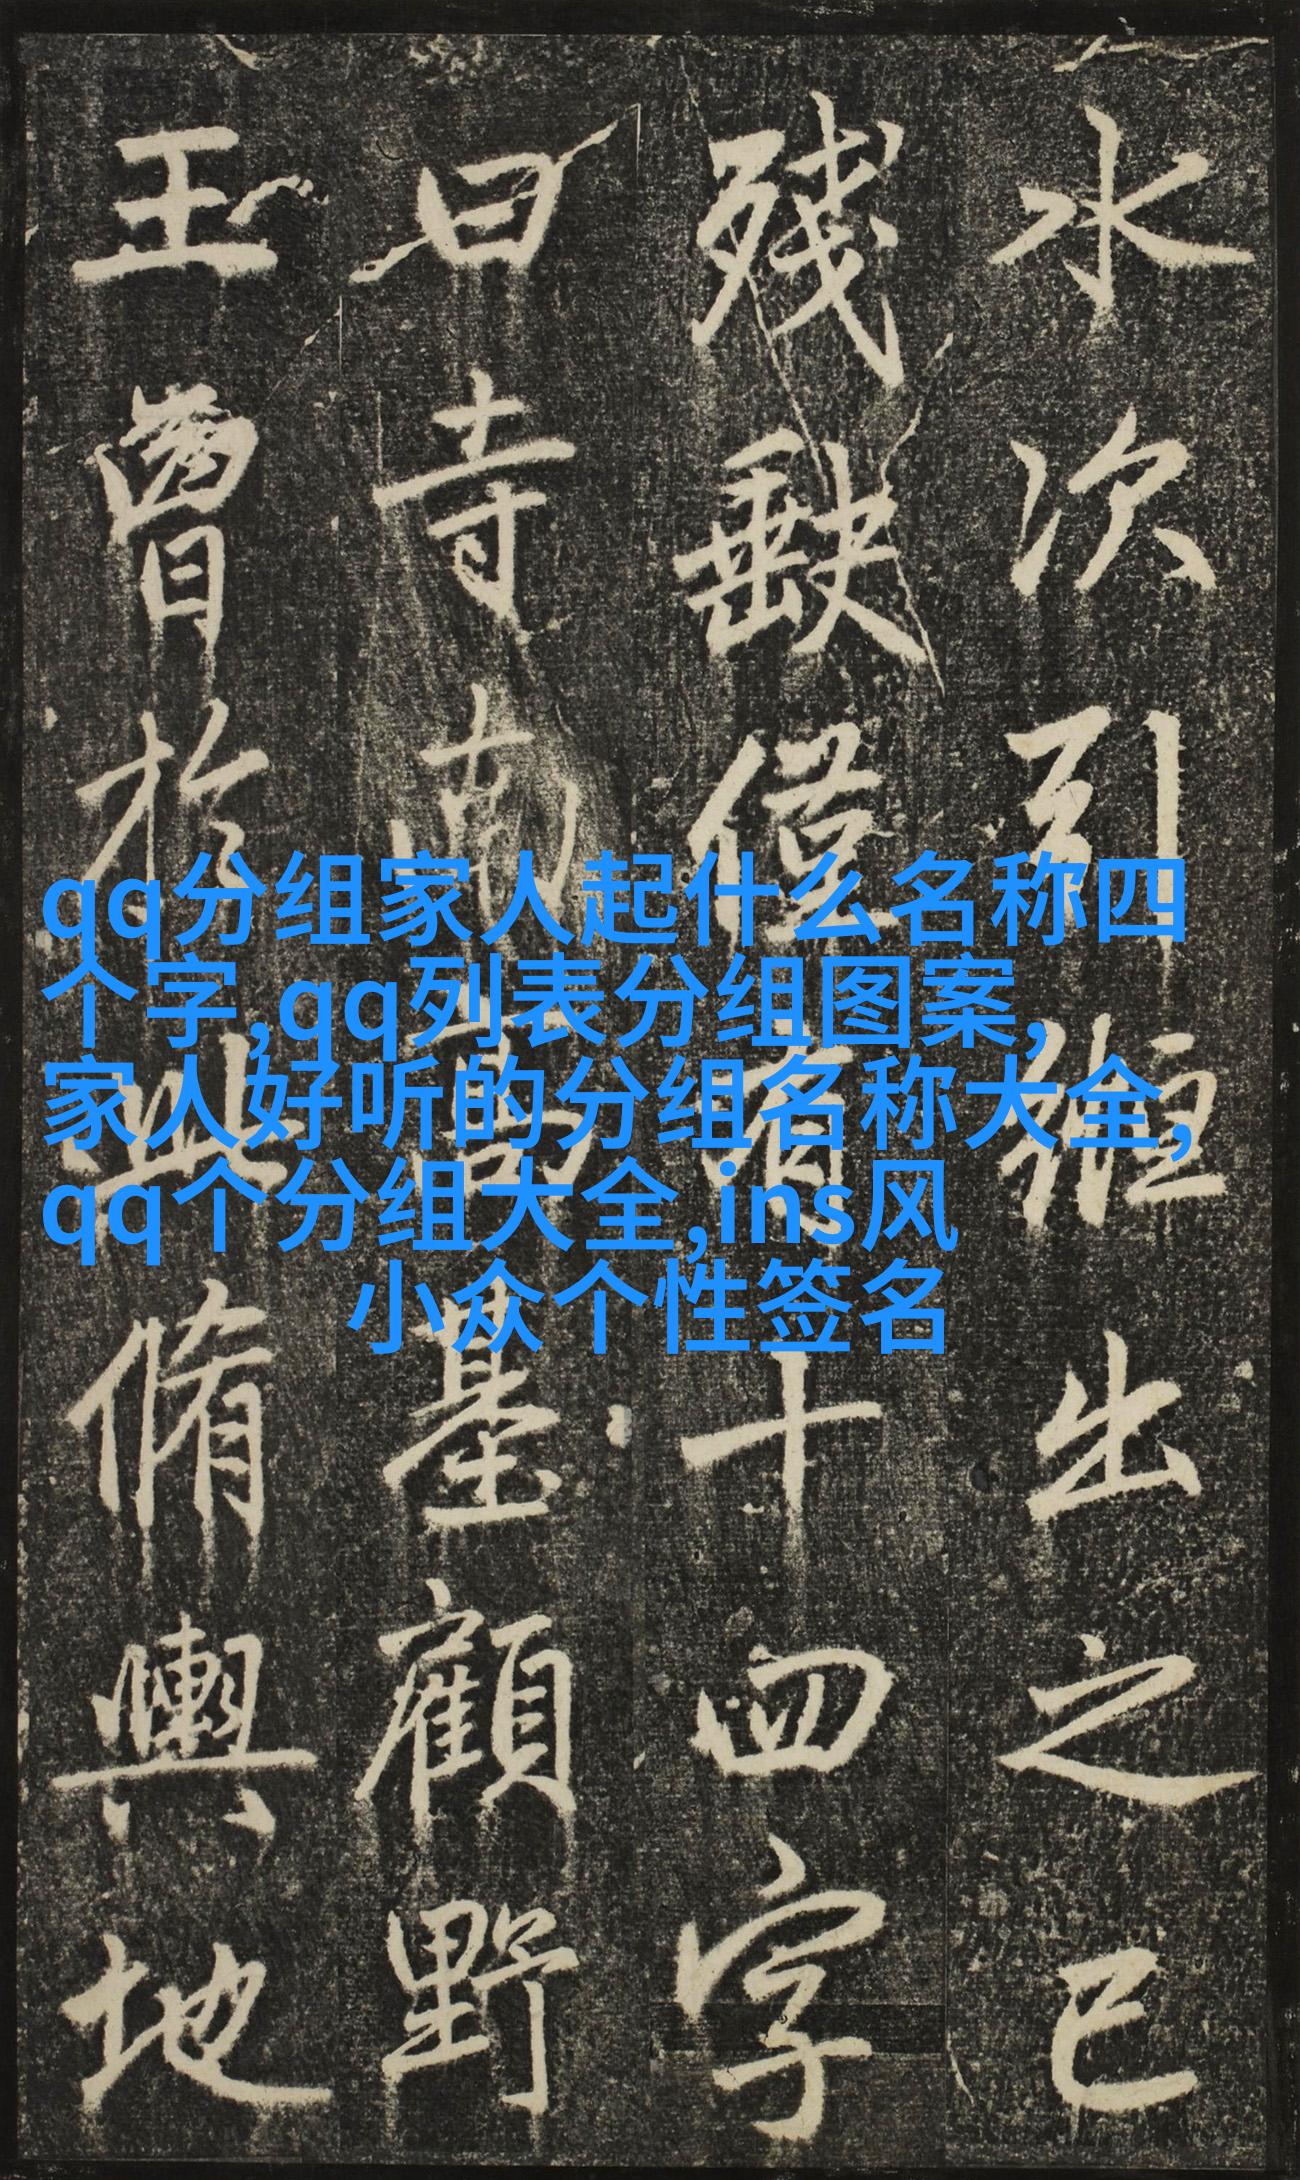 水次引纒出之已
残缺僅有十四字
曰寺南高基顧野
王曾於此脩輿地
qq分组家人起什么名称四
个字,qq列表分组图案,
家人好听的分组名称大全,
qq个分组大全,ins风
小众个性签名